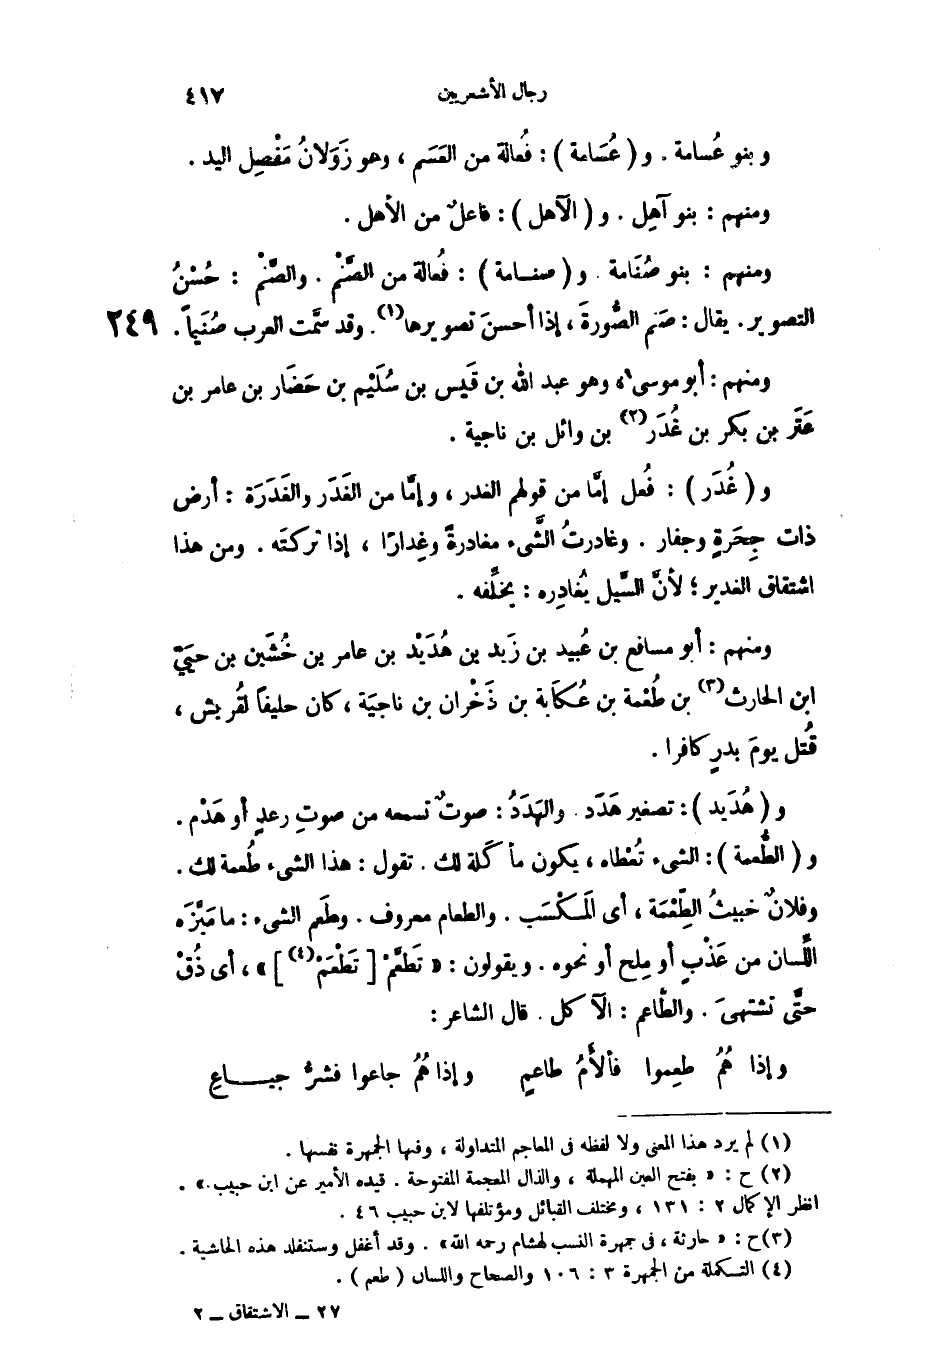 رجال الأشعريين ٤١٧
و بنو عُسامة . و ( عُسَامة ) : فُعالة من العَسَم ، وهو زَوَلانُ مَفْصِل اليد .
ومنهم : بنو آهِل . و ( الآهل ) : فاعلٌ من الأهل .
ومنهم : بنو صُنَامة . و ( صنامة ) : فُعالة من الصَّنْم . والصَّنْم : حُسْنُ
التصوير . يقال : صَنم الصُّورةَ ، إذا أحسنَ تصويرها (١) . وقد سمَّت العرب صُنَيماً . ٢٤٩
ومنهم : أبو موسى ، وهو عبد الله بن قَيس بن سُلَيْم بن حَضَار بن عامر بن
عَتَر بن بَكر بن غُدَر (٢) بن وائل بن ناجية .
و ( غُدَر ) : فُعل إمَّا من قولهم الغدر ، وإمَّا من الغَدَر والغَدَرَة : أرض
ذات جِحَرةٍ وجفار . وغادرتُ الشَّىء مغادرةً وغِدارًا ، إذا تركتَه . ومن هذا
اشتقاق الغدير ؛ لأنَّ السَّيل يُغادِره : يخلِّفه .
ومنهم : أبو مسافع بن عُبيد بن زَيد بن هُدَيْد بن عامر بن خُشَين بن حيَيّ
ابن الحارث (٣) بن طُعْمة بن عُكَابة بن ذَخْران بن ناجيَة ، كان حليفاً لقُريش ،
قُتل يومَ بدرٍ كافرا .
و ( هُدَيد ) : تصغير هَدَد . والهَدَدُ : صوتٌ تسمعه من صوتِ رعدٍ أو هَدْم .
و ( الطُّعمة ) : الشىء تُعْطاه ، يكون مأكَلة لك . تقول : هذا الشىء طُعمة لك .
وفلانٌ خبيثُ الطِّعْمَة ، أى المَكْسَب . والطعام معروف . وطَعم الشىء : ما مَيَّزَه
اللِّسان من عَذْبٍ أو مِلح أو نحوه . ويقولون : « تَطعَّمْ [ تَطْعَمْ (٤) ] » ، أى ذُقْ
حتَّى تشتهىَ . والطّاعم : الآكل . قال الشاعر :
وإذا هُمُ طعِموا فألأَمُ طاعمٍ وإذا هُمُ جاعوا فشرُّ جيـاعِ
(١) لم يرد هذا المعنى ولا لفظه فى المعاجم المتداولة ، وفيها الجمهرة نفسها .
(٢) ح : « بفتح العين المهملة ، والذال المعجمة المفتوحة . قيده الأمير عن ابن حبيب . » .
انظر الإكمال ٢ : ١٣١ ، ومختلف القبائل ومؤتلفها لابن حبيب ٤٦ .
(٣) ح : « حارثة ، فى جمهرة النسب لهشام رحمه الله » . وقد أغفل وستنفلد هذه الحاشية .
(٤) التكملة من الجمهرة ٣ : ١٠٦ والصحاح واللسان ( طعم ) .
٢٧ ــ الاشتقاق ــ ٢